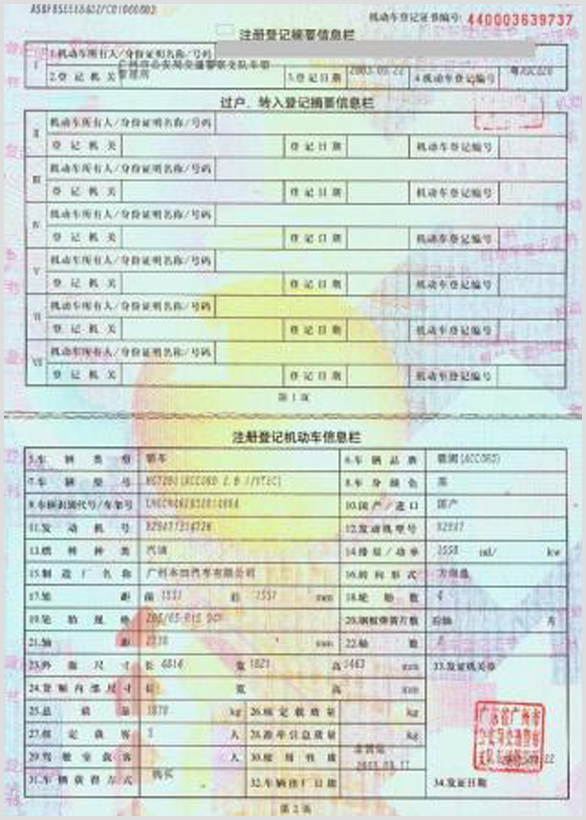 机动车登记证书编号: 440003639737
注册登记摘要信息栏
I 1.机动车所有人/身份证明名称/号码
2.登记机关 广州市公安局交通警察支队车辆管理所 3.登记日期 2003.09.22 4.机动车登记编号
过户、转入登记摘要信息栏
II 机动车所有人/身份证明名称/号码
登记机关 登记日期 机动车登记编号
III 机动车所有人/身份证明名称/号码
登记机关 登记日期 机动车登记编号
IV 机动车所有人/身份证明名称/号码
登记机关 登记日期 机动车登记编号
V 机动车所有人/身份证明名称/号码
登记机关 登记日期 机动车登记编号
VI 机动车所有人/身份证明名称/号码
登记机关 登记日期 机动车登记编号
VII 机动车所有人/身份证明名称/号码
登记机关 登记日期 机动车登记编号
第1页
注册登记机动车信息栏
5.车辆类型 轿车 6.车辆品牌 雅阁(ACCORD)
7.车辆型号 8.车身颜色 黑
9.车辆识别代号/车架号 10.国产/进口 国产
11.发动机号 12.发动机型号
13.燃料种类 汽油 14.排量/功率 ml/ kw
15.制造厂名称 广州本田汽车有限公司 16.转向形式 方向盘
17.轮距 前 1551 后 1551 mm 18.轮胎数 4
19.轮胎规格 205/65 R15 20.钢板弹簧片数 后轴 片
21.轴距 mm 22.轴数 2
23.外廓尺寸 长 4814 宽 1821 高 1463 mm 33.发证机关章
24.货厢内部尺寸 长 宽 高 mm
25.总质量 1870 kg 26.核定载质量 kg
27.核定载客 5 人 28.准牵引总质量 kg
29.驾驶室载客 人 30.使用性质
31.车辆获得方式 购买 32.车辆出厂日期 34.发证日期
第2页